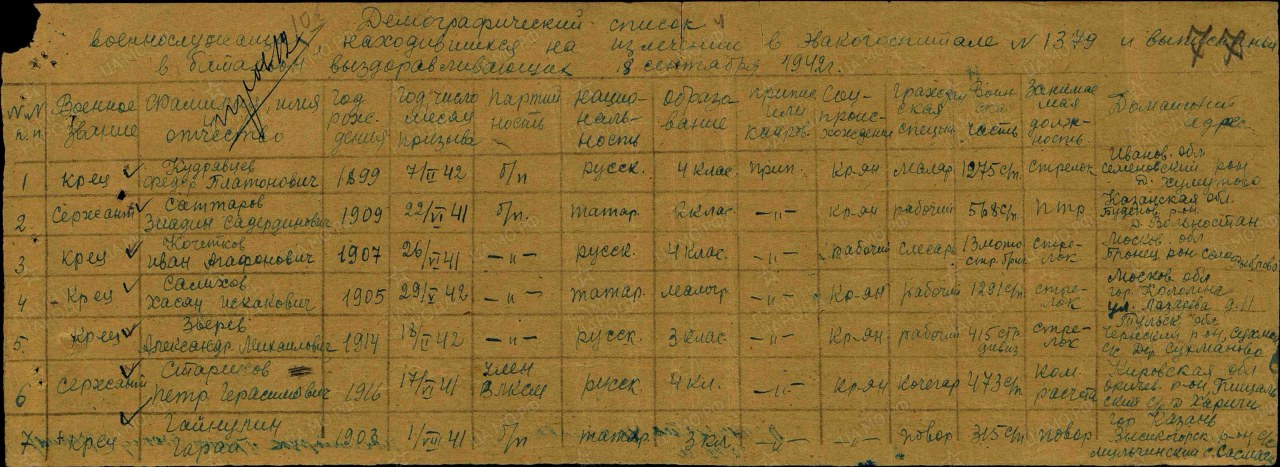 Демографический список
военнослужащих находившихся на излечении в Эвакогоспитале N 1379 и выписанных
в батальон выздоравливающих 18 сентября 1942г.
77
№№ п.п. Военное звание Фамилия, имя и отчество Год рождения Год, число месяц призыва Партийность Национальность Образование Приписн. или кадров. Соц. происхождение Граждан ская специал. Воинская часть Занимаемая должность Домашний адрес
1 Кр-ец Кудрявцев Федор Платонович 1899 7/VI 42 б/п русск. 4 клас. прип. Кр-ян маляр 1275 с/п стрелок Иванов. обл. Семеновский р-он
2 Сержант Саттаров Зиадин Садердинович 1909 22/VI 41 б/п. татар. 2 клас. -"- кр-ян рабочий 568 с/п птр Казанская обл. Буденов. р-он.
3 Кр-ец Кочетков Иван Агафонович 1907 26/VI 41 -"- русск. 4 клас. -"- рабочий слесарь 13 мото стр. бриг стрелок Москов. обл. Бронец. р-он село
4 Кр-ец Салихов Хасан Искакович 1905 29/V 42 -"- татар. малогр -"- Кр-ян рабочий 1291 с/п. стрелок Москов. обл. гор. Коломна ул. Лазарева д. 11
5. Кр-ец Зверев Александр Михаилович 1914 18/VI 42 -"- русск. 3 клас. -"- Кр-ян рабочий 415 стр дивиз стрелок Тульск. обл. Чернский р-он, с/с дер. Сукманово
6 Сержант Стариков Петр Герасимович 1916 17/VI 41 Член ВЛКСМ русск. 4 кл. -"- Кр-ян Кочегар 473 с/п Ком. расчета Кировская обл. Оричев. р-он, Пищальский с/с д. Харичи
7 Кр-ец Гайнулин Гарай 1903 1/VIII 41 б/п татар. 3 кл. -"- -"- повар 315 с/п повар гор. Казань Высокогорск. р-он с/с